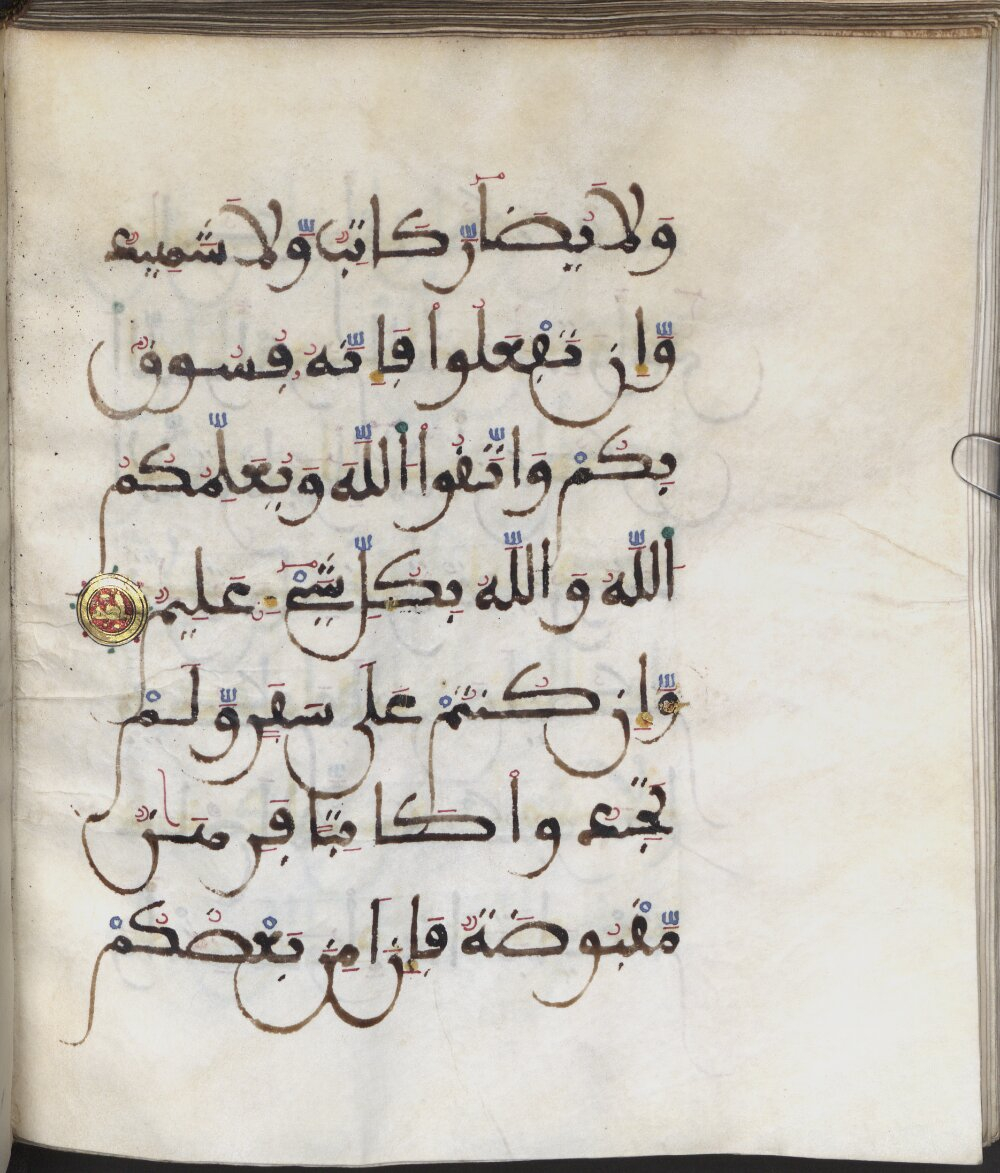 وَلَا يُضَارَّ كَاتِبٌ وَّلَا شَهِيدٌ
وَّإِن تَفْعَلُواْ فَإِنَّهُۥ فُسُوقٌ
بِكُمْ وَاتَّقُواْ اُللَّهَ وَيُعَلِّمُكُمُ
اُللَّهُ وَاللَّهُ بِكُلِّ شَيْءٍ عَلِيمٌ
وَّإِن كُنتُمْ عَلَىٰ سَفَرٍ وَّلَمْ
تَجِدُواْ كَاتِبًا فَرِهَـٰنٌ
مَّقْبُوضَةٌ فَإِنْ اَمِنَ بَعْضُكُم